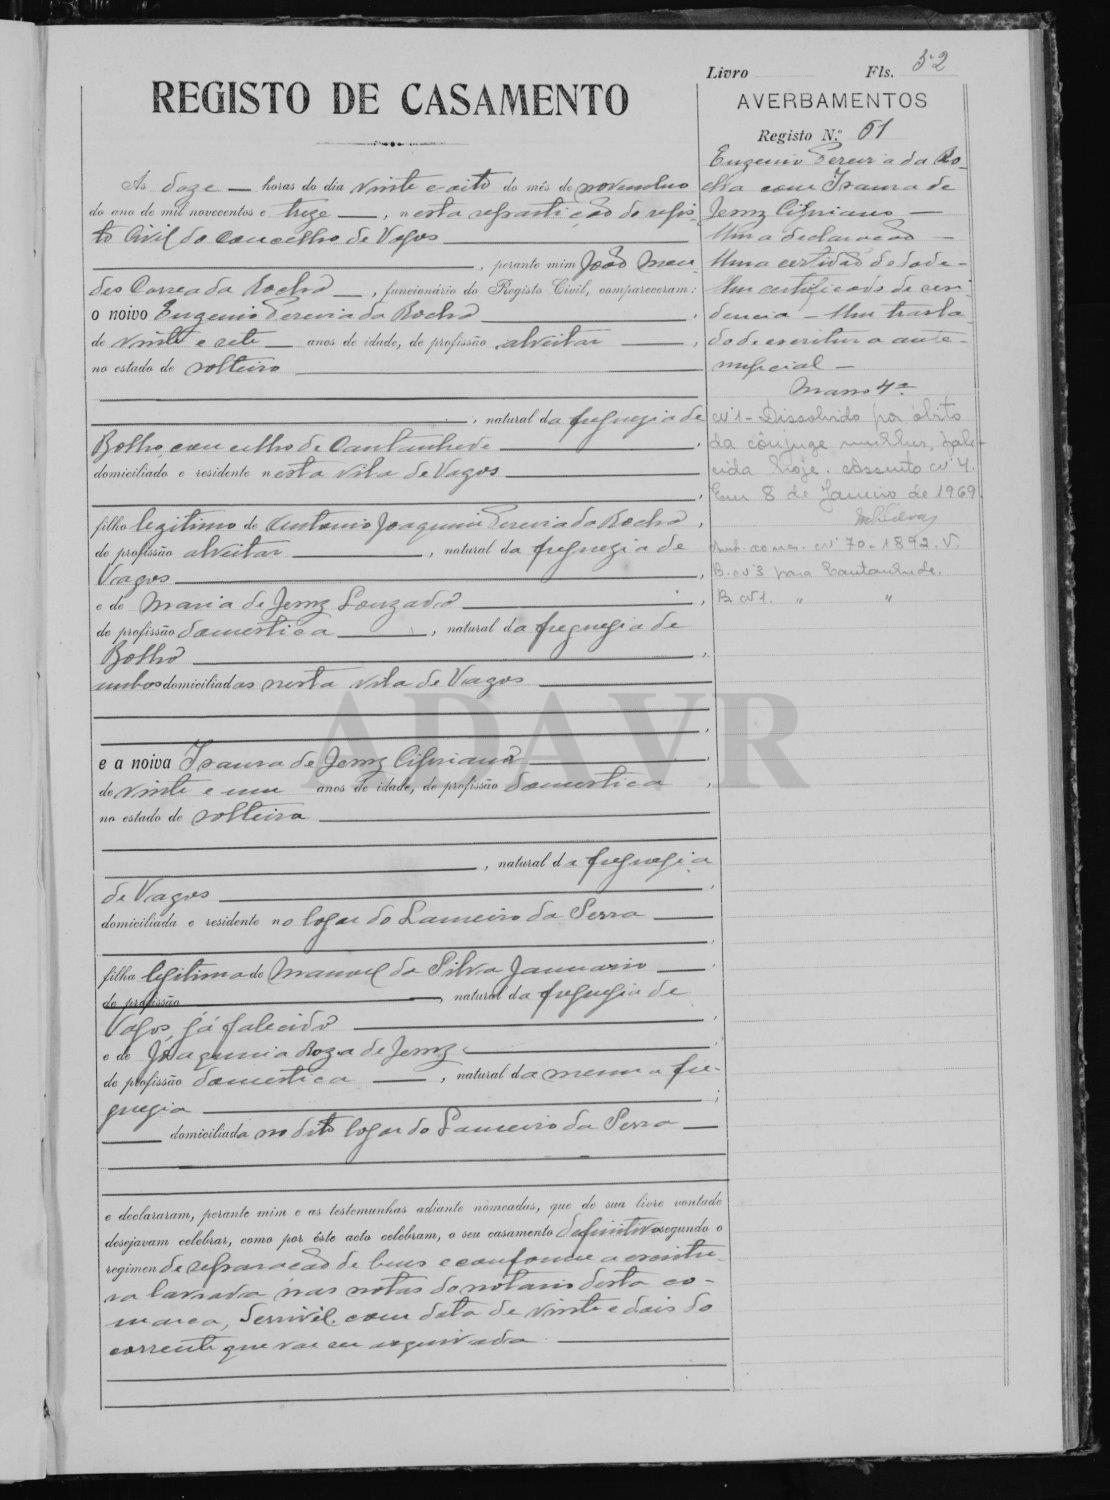 Livro Fls. 52
REGISTO DE CASAMENTO
AVERBAMENTOS
Registo N.º 51
Às doze — horas do dia vinte e oito do mês de novembro
do ano de mil novecentos e treze —, nesta repartição do regis-
to Civil do concelho de Vagos
, perante mim João Men-
des Correa da Rocha —, funcionário do Registo Civil, compareceram:
o noivo Eugenio Pereira da Rocha
de vinte e sete — anos de idade, de profissão alveitar —,
no estado de solteiro
, natural da freguezia de
Bolho, concelho de Cantanhede
domiciliado e residente nesta vila de Vagos
filho legitimo de Antonio Joaquim Pereira da Rocha,
de profissão alveitar —, natural da freguezia de
Vagos
e de Maria de Jesus Louzada
de profissão domestica —, natural da freguezia de
Bolho
ambos domiciliados nesta vila de Vagos
e a noiva Isaura de Jesus Cipriano
de vinte e um anos de idade, de profissão domestica
no estado de solteira
, natural da freguezia
de Vagos
domiciliada e residente no logar do Lameiro da Serra —
filha legitima de Manoel da Silva Januario —
de profissão —, natural da freguezia de
Vagos, já falecido
e de Joaquina Roza de Jesus
de profissão domestica —, natural da mesma fre-
guezia
— domiciliada no dito logar do Lameiro da Serra —
e declararam, perante mim e as testemunhas adiante nomeadas, que de sua livre vontade
desejavam celebrar, como por êste acto celebram, o seu casamento definitivo segundo o
regimen de separação de bens e conforme a escritu-
ra lavrada nas notas do notario desta co-
marca, com data de vinte e dois do
corrente que vae ser arquivada
Eugenio Pereira da Ro-
cha com Isaura de
Jesus Cipriano —
Uma declaração —
Uma certidão de idade -
Um certificado de resi-
dencia — Um trasla-
do de escritura ante-
nupcial —
Masso 4º
Nº 1 - Dissolvido por óbito
da cônjuge mulher, fale-
cida hoje. Assento nº 4.
Em 8 de Janeiro de 1969.
nº 70 - 1892. V.
B. nº 3 para Cantanhede.
B. nº 1. " "
ADAVR